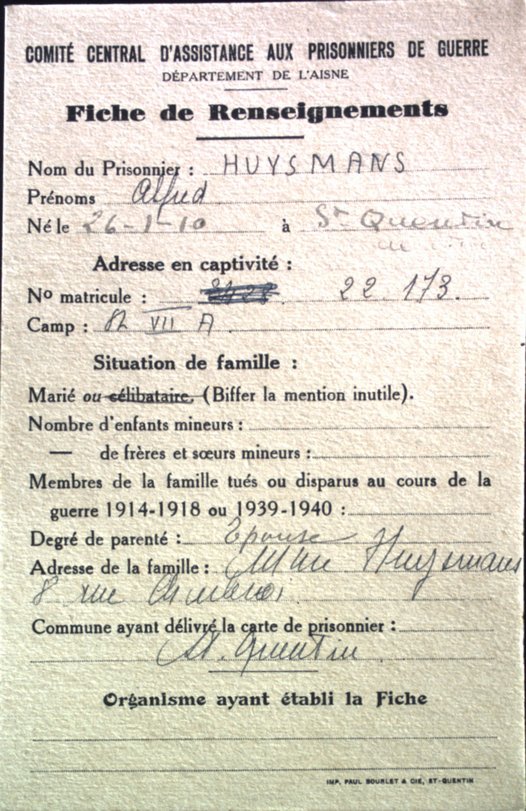 COMITÉ CENTRAL D'ASSISTANCE AUX PRISONNIERS DE GUERRE
DÉPARTEMENT DE L'AISNE
Fiche de Renseignements
Nom du Prisonnier : HUYSMANS
Prénoms Alfred
Né le 26-1-10 à St Quentin
Adresse en captivité :
No matricule : 22.173.
Camp : VII A
Situation de famille :
Marié ou célibataire. (Biffer la mention inutile).
Nombre d'enfants mineurs :
— de frères et sœurs mineurs :
Membres de la famille tués ou disparus au cours de la
guerre 1914-1918 ou 1939-1940 :
Degré de parenté : Epouse
Adresse de la famille : Mme Huysmans
8 rue
Commune ayant délivré la carte de prisonnier :
St. Quentin
Organisme ayant établi la Fiche
IMP. PAUL BOURLET & CIE, ST-QUENTIN